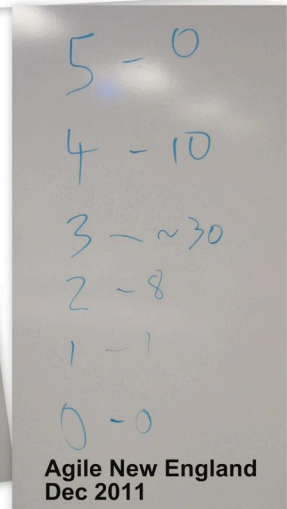 5 - 0
4 - 10
3 - ~30
2 - 8
1 - 1
0 - 0
Agile New England
Dec 2011